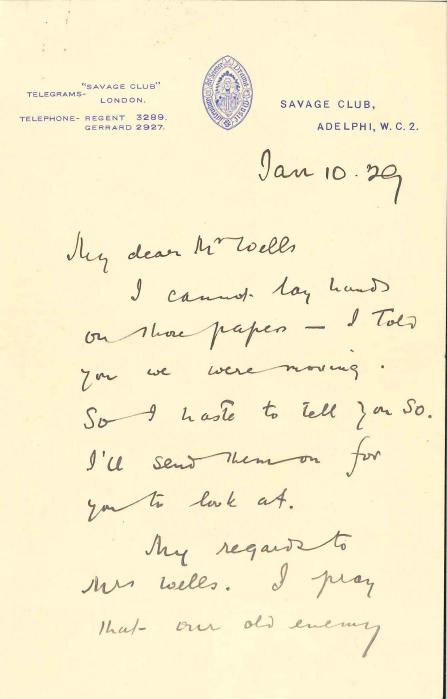 TELEGRAMS- "SAVAGE CLUB"
LONDON.
TELEPHONE- REGENT 3289.
GERRARD 2927.
SAVAGE CLUB,
ADELPHI, W.C.2.
Jan 10. 29
My dear Mr Wells
I cannot lay hands
on those papers – I told
you we were moving.
So I haste to tell you so.
I'll send them on for
you to look at.
My regards to
Mrs Wells. I pray
that our old enemy